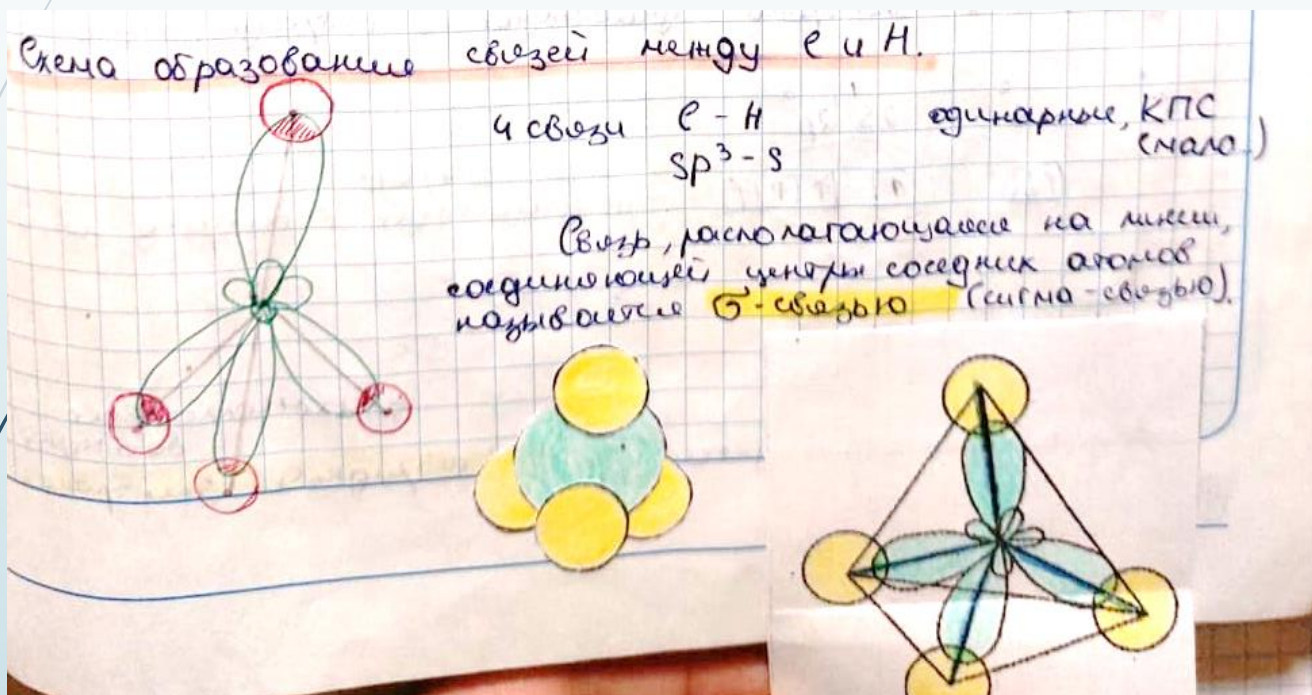 Схема образования связей между С и Н.
4 связи С - Н одинарные, КПС
sp³ - s (мало.)
Связь, располагающаяся на линии,
соединяющей центры соседних атомов
называется σ-связью (сигма-связью).